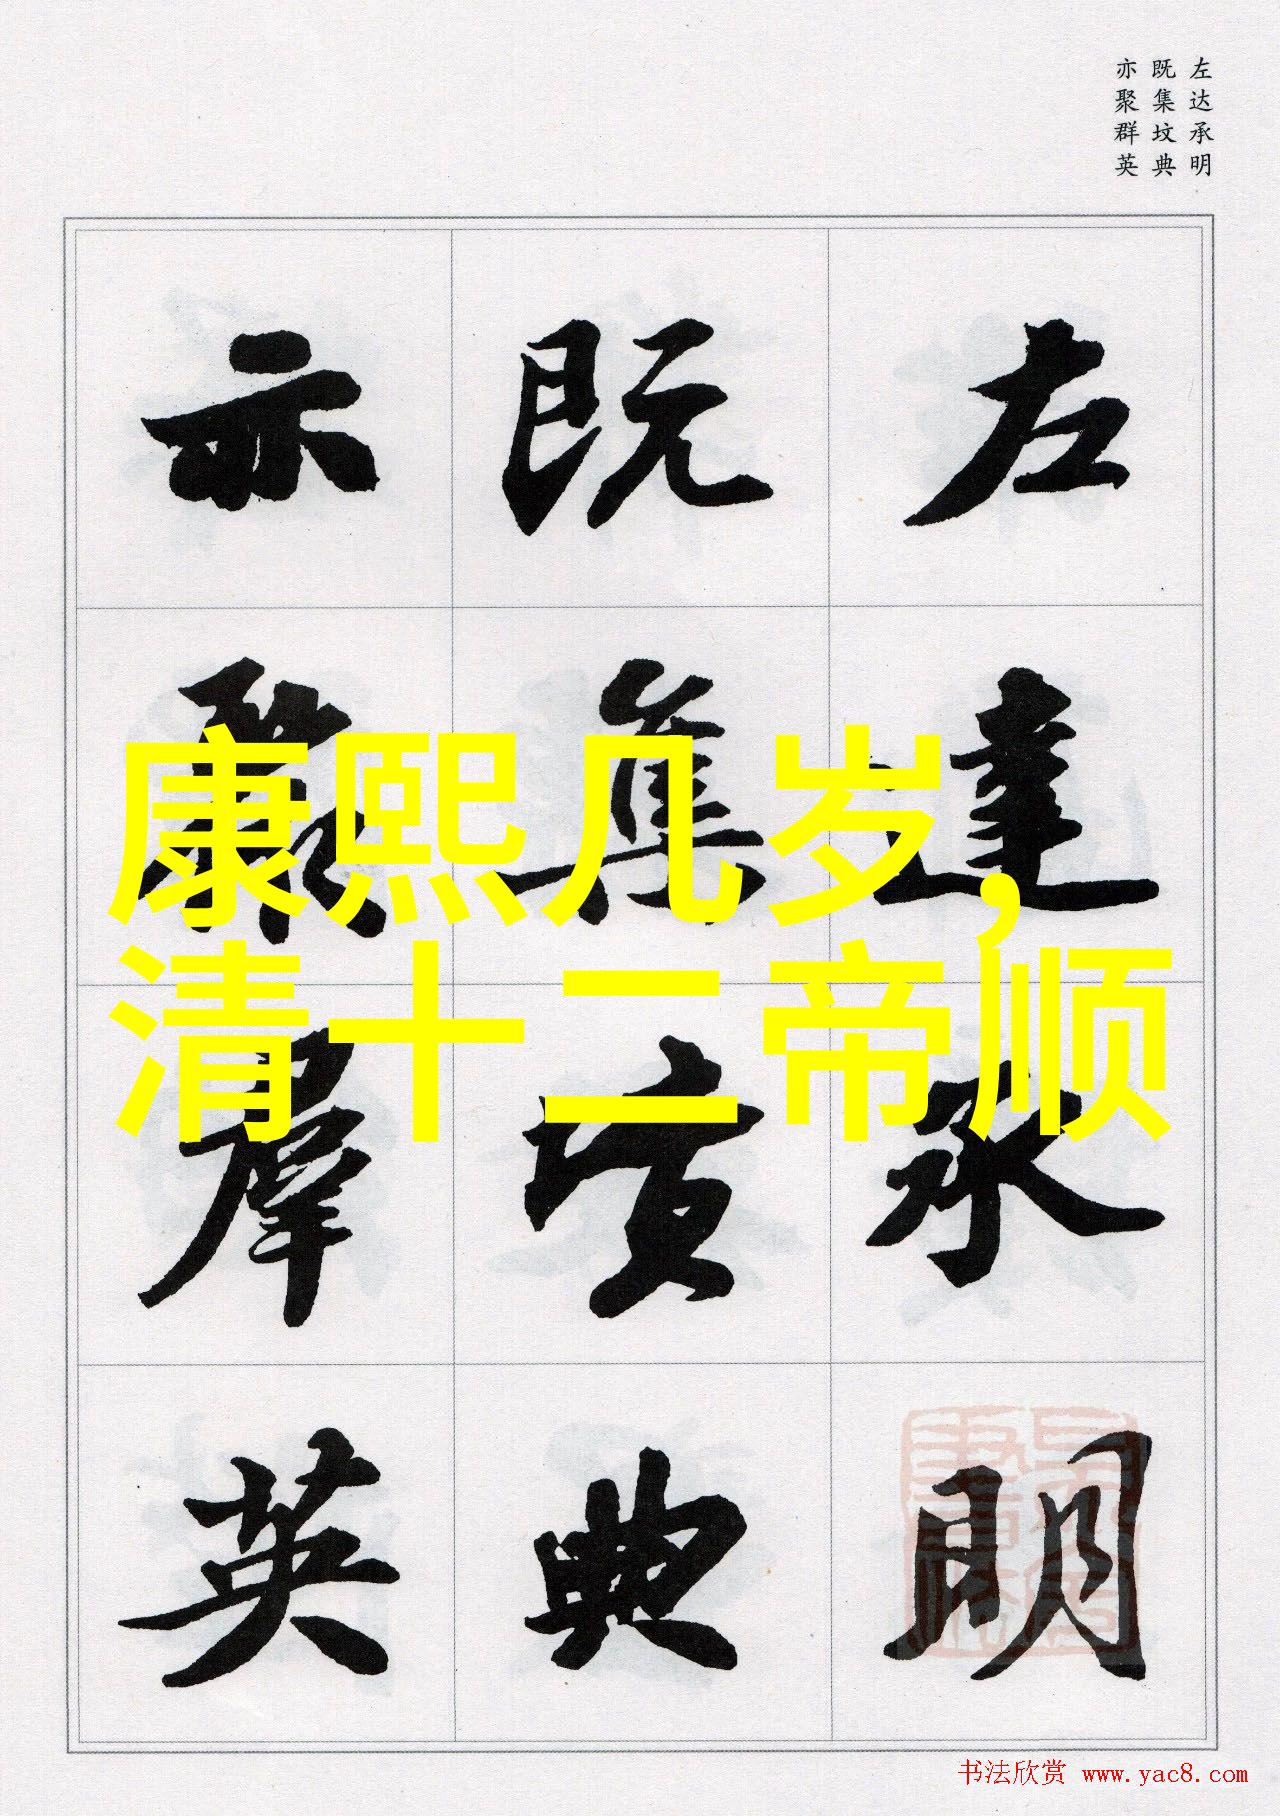 左达承明
既集坟典
亦聚群英
左達承明
既集墳典
亦聚羣英
康熙几岁，
清十二帝顺
书法欣赏 www.yac8.com